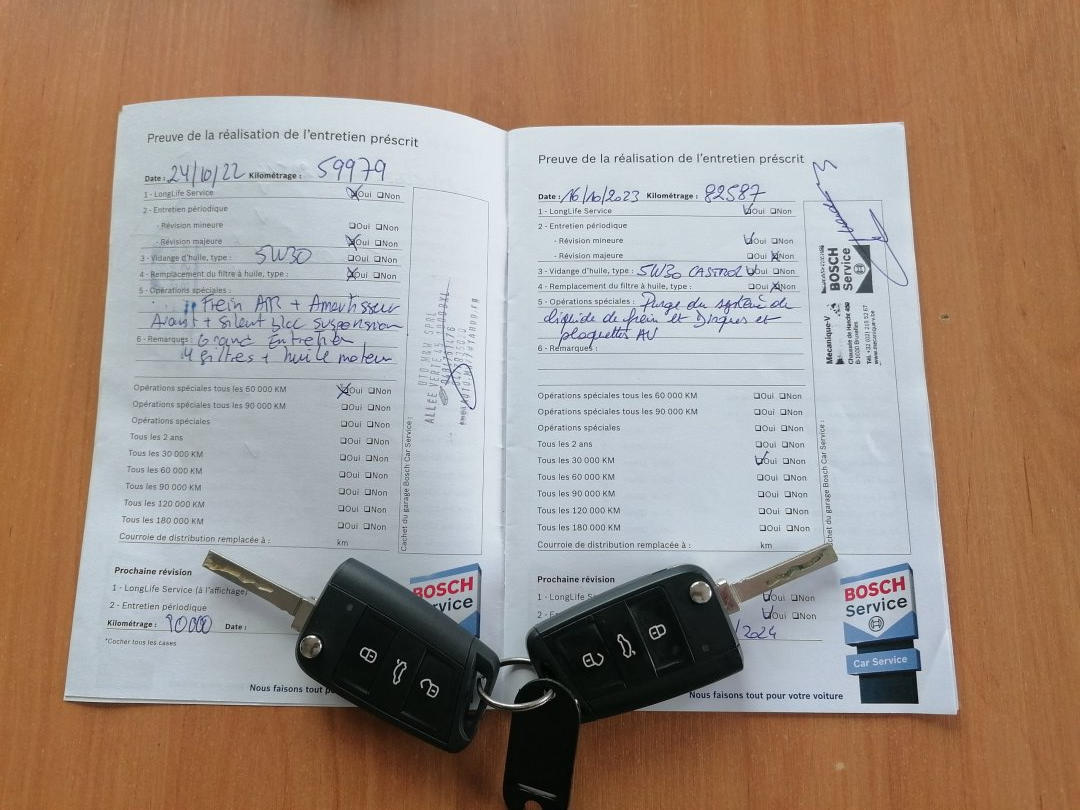 Preuve de la réalisation de l'entretien préscrit
Date : 24/10/22 Kilométrage : 59979
1 - LongLife Service ☒Oui ❑Non
2 - Entretien périodique
- Révision mineure ❑Oui ❑Non
- Révision majeure ☒Oui ❑Non
3 - Vidange d'huile, type : 5W30 ❑Oui ❑Non
4 - Remplacement du filtre à huile, type : ☒Oui ❑Non
5 - Opérations spéciales :
Frein AR + Amortisseur
Avant + silent bloc suspension
6 - Remarques : Grand Entretien
4 filtres + huile moteur
Opérations spéciales tous les 60 000 KM ☒Oui ❑Non
Opérations spéciales tous les 90 000 KM ❑Oui ❑Non
Opérations spéciales ❑Oui ❑Non
Tous les 2 ans ❑Oui ❑Non
Tous les 30 000 KM ❑Oui ❑Non
Tous les 60 000 KM ❑Oui ❑Non
Tous les 90 000 KM ❑Oui ❑Non
Tous les 120 000 KM ❑Oui ❑Non
Tous les 180 000 KM ❑Oui ❑Non
Courroie de distribution remplacée à : km
Cachet du garage Bosch Car Service :
Prochaine révision
1 - LongLife Service (à l'affichage)
2 - Entretien périodique
Kilométrage : 90000 Date :
*Cocher tous les cases
BOSCH
Service
Nous faisons tout po
Preuve de la réalisation de l'entretien préscrit
Date : 16/10/2023 Kilométrage : 82587
1 - LongLife Service ☑Oui ❑Non
2 - Entretien périodique
- Révision mineure ☑Oui ❑Non
- Révision majeure ❑Oui ☒Non
3 - Vidange d'huile, type : 5W30 CASTROL ☑Oui ❑Non
4 - Remplacement du filtre à huile, type : ❑Oui ☒Non
5 - Opérations spéciales : Purge du système de
liquide de frein et Disques et
plaquettes AV
6 - Remarques :
Opérations spéciales tous les 60 000 KM ❑Oui ❑Non
Opérations spéciales tous les 90 000 KM ❑Oui ❑Non
Opérations spéciales ❑Oui ❑Non
Tous les 2 ans ❑Oui ❑Non
Tous les 30 000 KM ☑Oui ❑Non
Tous les 60 000 KM ❑Oui ❑Non
Tous les 90 000 KM ❑Oui ❑Non
Tous les 120 000 KM ❑Oui ❑Non
Tous les 180 000 KM ❑Oui ❑Non
Courroie de distribution remplacée à : km
Cachet du garage Bosch Car Service :
BOSCH
Service
Mecanique-V
Chaussée de Haecht
Prochaine révision
1 - LongLife S ☑Oui ❑Non
2 - E ☑Oui ❑Non
/2024
BOSCH
Service
Car Service
Nous faisons tout pour votre voiture